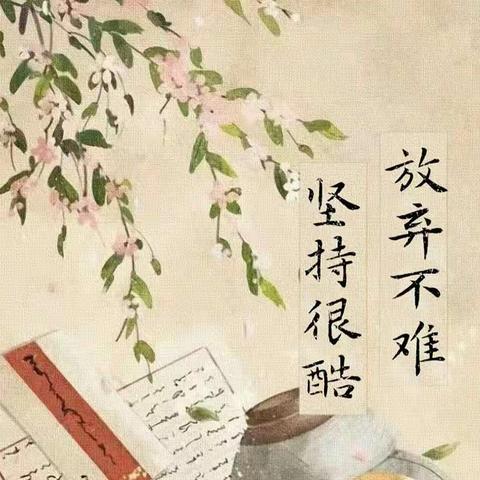 放弃不难
坚持很酷